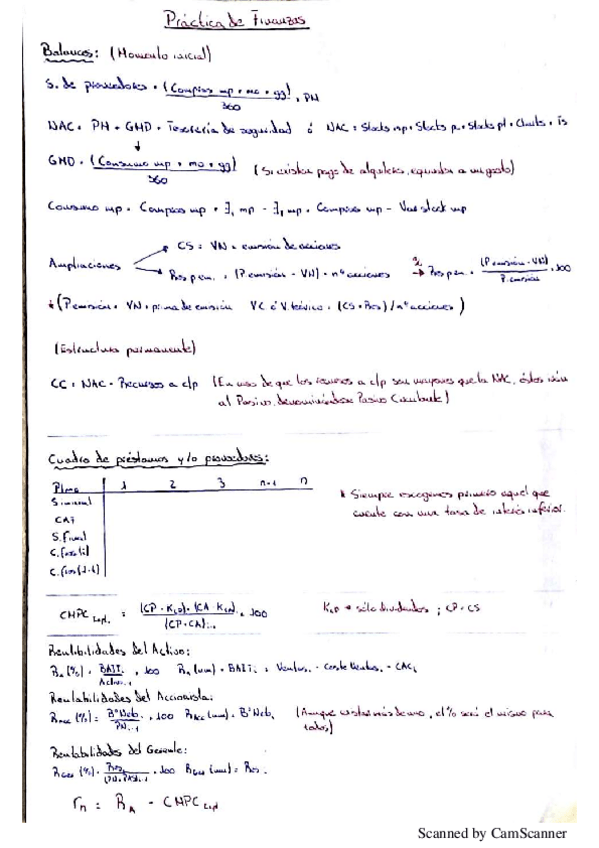 Práctica de Finanzas
Balances: (Momento inicial)
S. de proveedores = (Compras mp + mo + gg) · PM
360
NAC = PM · GMD + Tesorería de seguridad ó NAC = Stocks mp + Stocks pc + Stocks pt + Clients + TS
GMD = (Consumo mp + mo + gg)
360
(Si existen pago de alquileres, equivalen a un gasto)
Consumo mp = Compras mp + Ei mp - Ef mp = Compras mp - Var stock mp
Ampliaciones
CS = VN · emisión de acciones
Res p em. = (P emisión - VN) · nº acciones
% Res p em. = (P emisión - VN) · 100
P. emisión
(P emisión = VN + prima de emisión VC ó V. teórico = (CS + Res) / nº acciones)
(Estructura permanente)
CC = NAC - Recursos a c/p (En caso de que los recursos a c/p sean mayores que la NAC, éstos irán
al Pasivo, denominándose Pasivo Corriente)
Cuadro de préstamos y/o proveedores:
Plazo 1 2 3 n-1 n
S. inicial
CAF
S. Final
C. fin (i)
C. fin (1-t)
* Siempre escogemos primero aquel que
cuente con una tasa de interés inferior.
(CP · K
· 100
(CP + CA)
sólo dividendos ; CP = CS
Rentabilidades del Activo:
Ra (%) = BAIT · 100 Ra (um) = BAIT = Ventas - Coste Ventas - CAC
Activo
Rentabilidades del Accionista:
Racc (%) = Bº Neto · 100 Racc (um) = Bº Neto
PN
(Aunque existan más de uno, el % será el mismo para
todos)
Rentabilidades del Gerente:
Rger (%) = Res · 100 Rger (um) = Res.
rn = RA - CMPC
Scanned by CamScanner